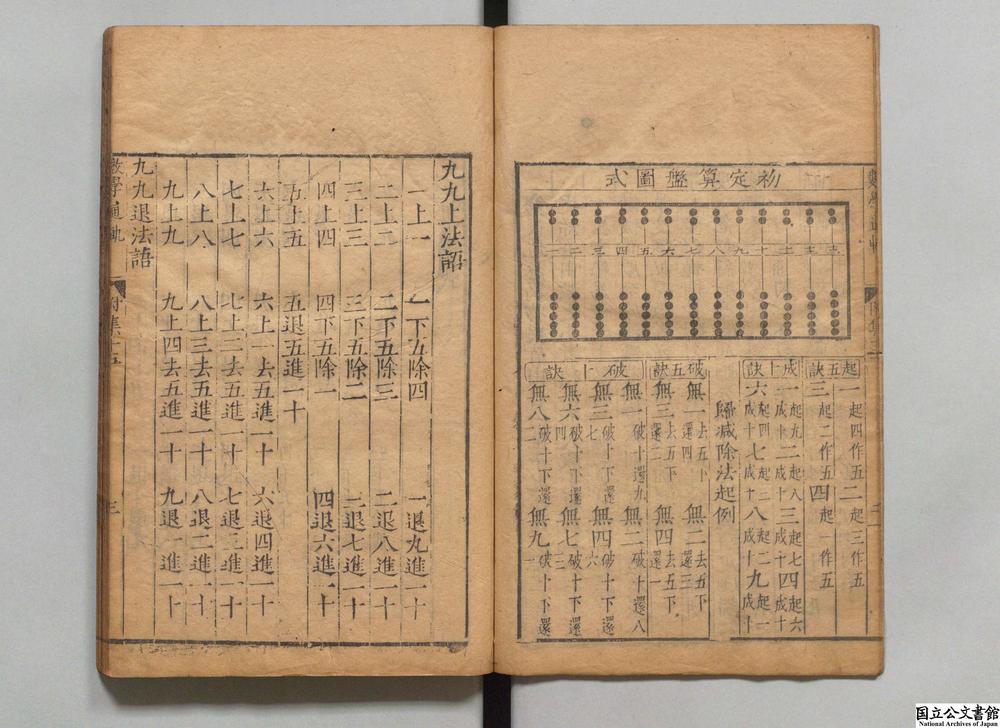 數學通軌
二
初定算盤圖式
一二三四五六七八九十十一十二十三
起五訣
一起四作五 二起三作五
三起二作五 四起一作五
成十訣
一起九成十 二起八成十 三起七成十 四起六成十
六起四成十 七起三成十 八起二成十 九起一成十
歸減除法起例
破五訣
無一去五下還四 無二去五下還三
無三去五下還二 無四去五下還一
破十訣
無一破十還九 無二破十還八
無三破十下還七 無四破十下還六
無六破十下還四 無七破十下還三
無八破十下還二 無九破十下還一
九九上法語
一上一 一下五除四 一退九進一十
二上二 二下五除三 二退八進一十
三上三 三下五除二 三退七進一十
四上四 四下五除一 四退六進一十
五上五 五退五進一十
六上六 六上一去五進一十 六退四進一十
七上七 七上二去五進一十 七退三進一十
八上八 八上三去五進一十 八退二進一十
九上九 九上四去五進一十 九退一進一十
九九退法語
數學通軌
三
国立公文書館
National Archives of Japan